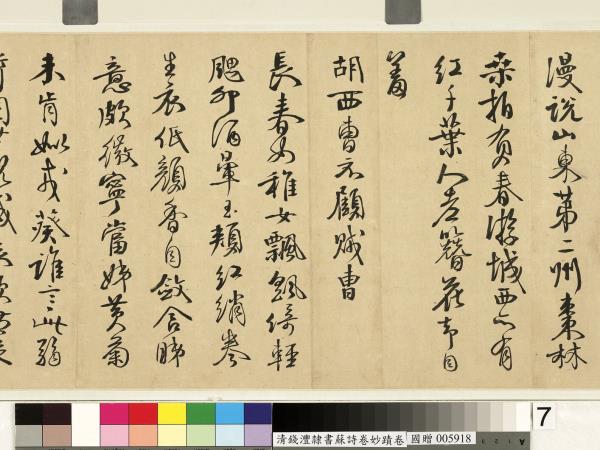 漫說山東第二州棗林
桑柘負春游城西亦有
紅千葉人老簪花却自
羞
胡西曹示顧賊曹
長春如稚女飄颻倚輕
颸卯酒暈玉頰紅綃卷
生衣低顏香自斂含睇
意頗微寧當娣黃菊
未肯姒戎葵誰言此弱
清錢灃隸書蘇詩卷妙蹟卷
國贈 005918
7